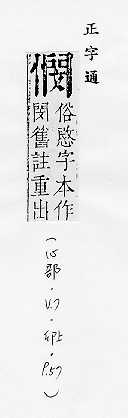 正字通
憫
俗愍字本作
閔舊註重出
(心部.V.7.卯上.P.57)